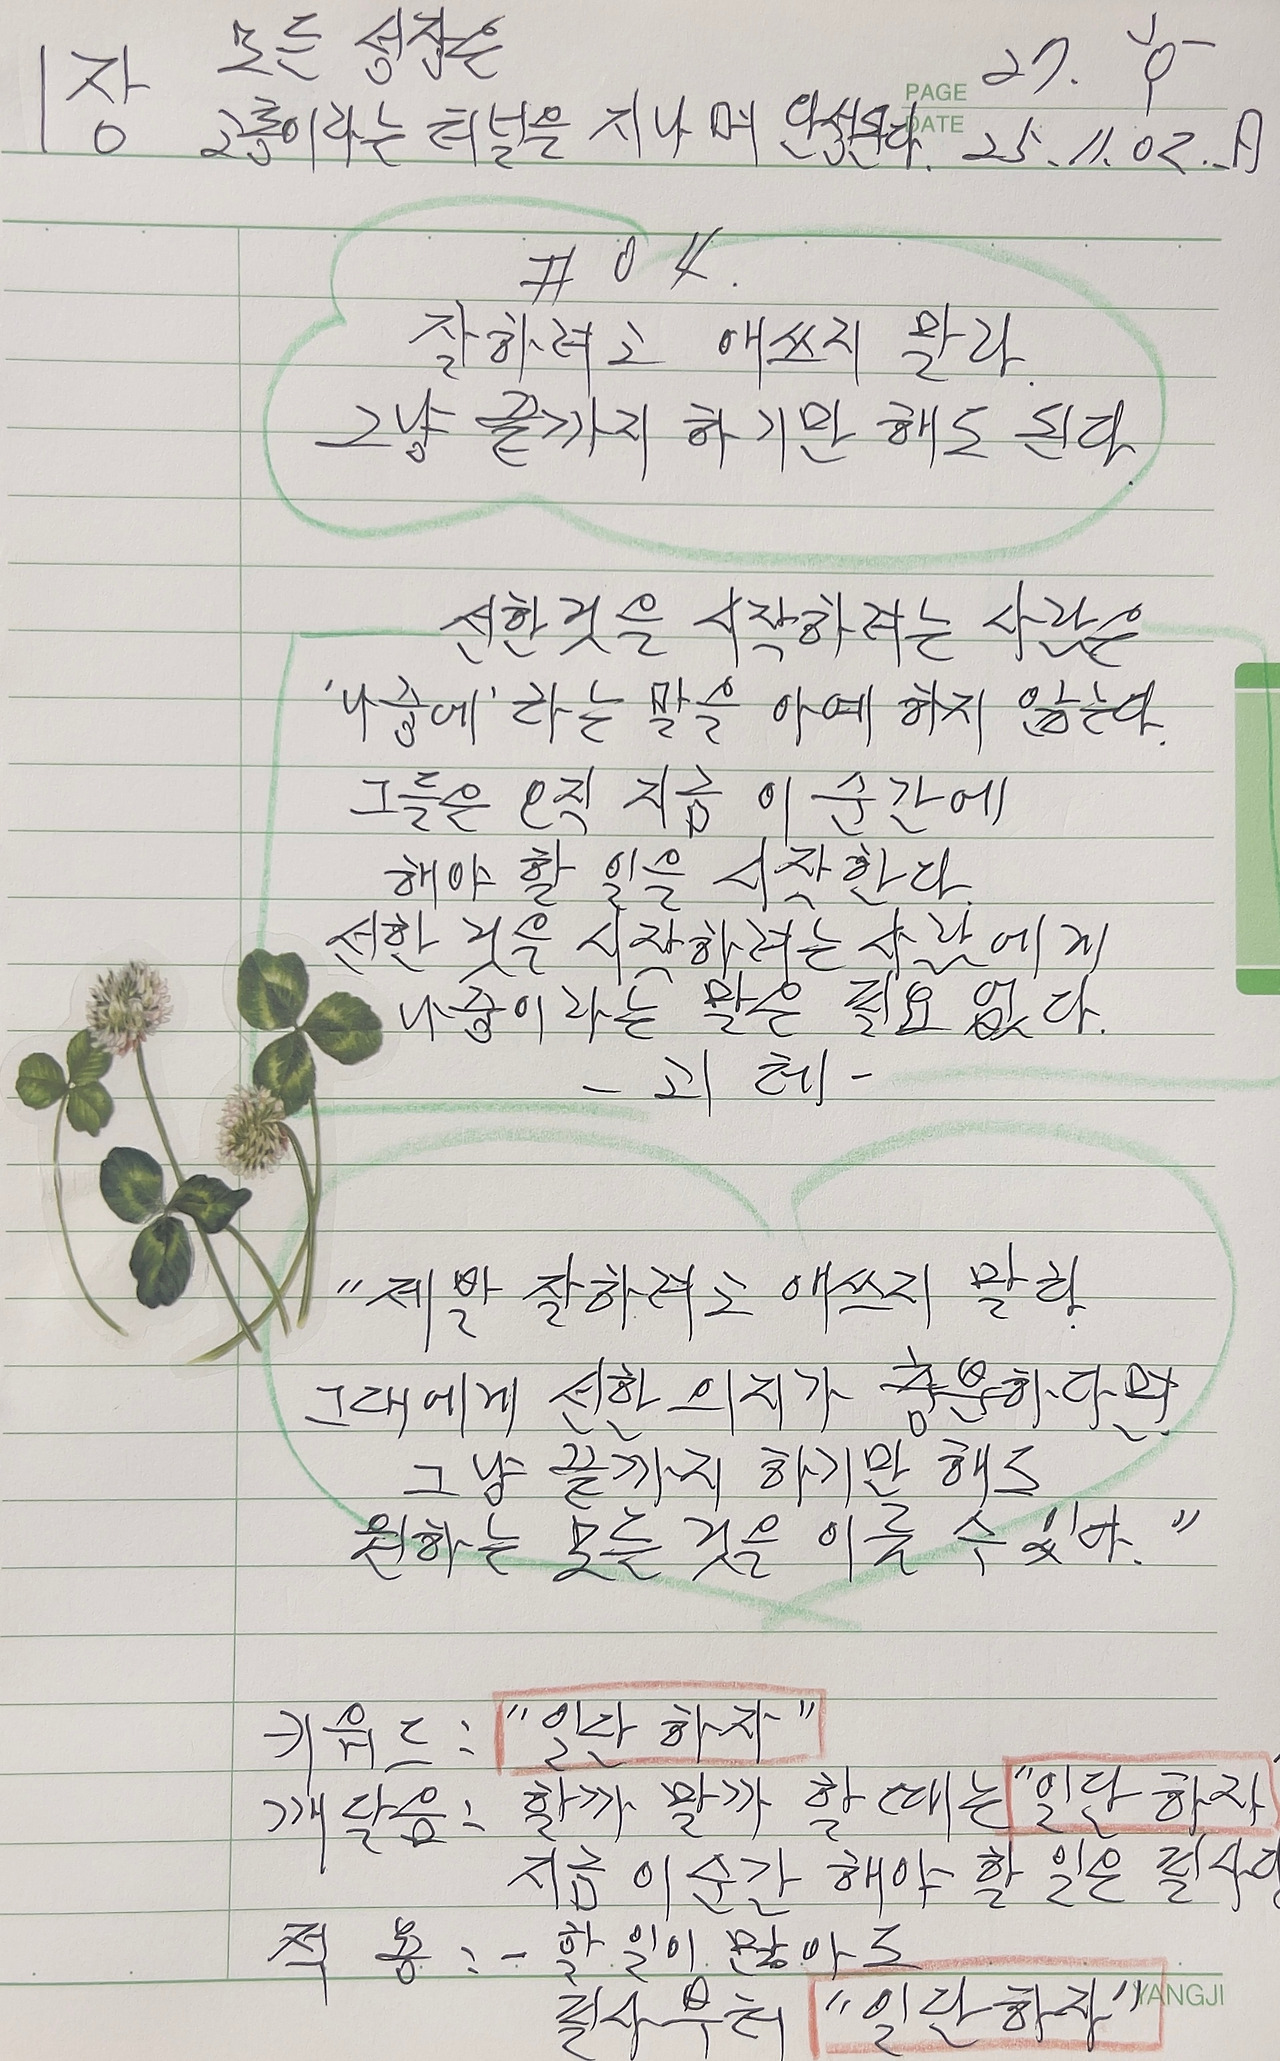 1장 모든 성장은
고통이라는 터널을 지나며 완성된다.
27. 우
PAGE
DATE
25.11.02.日
#04.
잘하려고 애쓰지 말라.
그냥 끝까지 하기만 해도 된다.
선한 것을 시작하려는 사람은
'나중에' 라는 말을 아예 하지 않는다.
그들은 오직 지금 이 순간에
해야 할 일을 시작한다.
선한 것을 시작하려는 사람에게
나중이라는 말은 필요 없다.
- 괴테 -
"제발 잘하려고 애쓰지 말라.
그대에게 선한 의지가 충분하다면
그냥 끝까지 하기만 해도
원하는 모든 것을 이룰 수 있다."
키워드 : "일단 하자"
깨달음 : 할까 말까 할 때는 "일단 하자"
지금 이 순간 해야 할 일은 필사
적용 : - 할 일이 많아도
필사부터 "일단 하자"
YANGJI